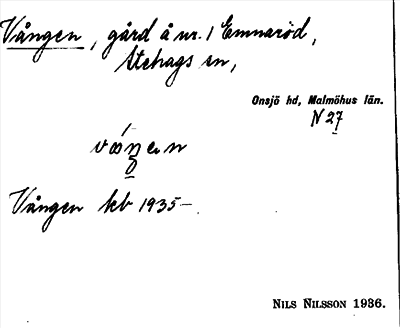 Vången, gård å nr. 1 Emnaröd,
Stehags sn,
Onsjö hd, Malmöhus län.
N 27
Vången kb 1935–.
NILS NILSSON 1936.